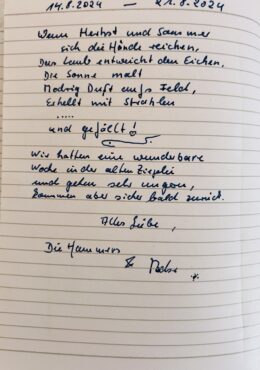 14.8.2024 — 21.8.2024
Wenn Herbst und Sommer
sich die Hände reichen,
Das Laub entweicht den Eichen,
Die Sonne malt
Modrig Duft aufs Feld,
Erhellt mit Strahlen
.....
und gefällt!
Wir hatten eine wunderbare
Woche in der alten Ziegelei
und gehen sehr ungern,
kommen aber sicher bald zurück.
Alles Liebe,
Die Hammers
&